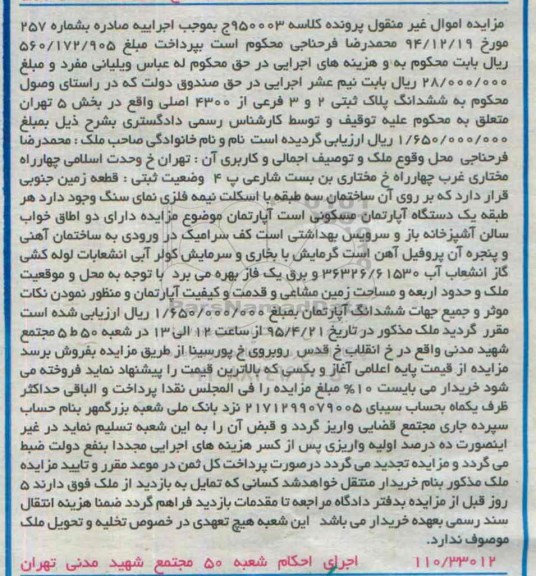 مزایده اموال غیر منقول پرونده کلاسه ۹۵۰۰۰۳ج بموجب اجراییه صادره بشماره ۲۵۷
مورخ ۹۴/۱۲/۱۹ محمدرضا فرحناجی محکوم است بپرداخت مبلغ ۵۶۰/۱۷۲/۹۰۵
ریال بابت محکوم به و هزینه های اجرایی در حق محکوم له عباس ویلیانی مفرد و مبلغ
۲۸/۰۰۰/۰۰۰ ریال بابت نیم عشر اجرایی در حق صندوق دولت که در راستای وصول
محکوم به ششدانگ پلاک ثبتی ۲ و ۳ فرعی از ۴۳۰۰ اصلی واقع در بخش ۵ تهران
متعلق به محکوم علیه توقیف و توسط کارشناس رسمی دادگستری بشرح ذیل بمبلغ
۱/۶۵۰/۰۰۰/۰۰۰ ریال ارزیابی گردیده است نام و نام خانوادگی صاحب ملک : محمدرضا
فرحناجی محل وقوع ملک و توصیف اجمالی و کاربری آن : تهران خ وحدت اسلامی چهارراه
مختاری غرب چهارراه خ مختاری بن بست شارعی پ ۴ وضعیت ثبتی : قطعه زمین جنوبی
قرار دارد که بر روی آن ساختمان سه طبقه با اسکلت نیمه فلزی نمای سنگ وجود دارد هر
طبقه یک دستگاه آپارتمان مسکونی است آپارتمان موضوع مزایده دارای دو اطاق خواب
سالن آشپزخانه باز و سرویس بهداشتی است کف سرامیک در ورودی به ساختمان آهنی
و پنجره آن پروفیل آهن است گرمایش با بخاری و سرمایش کولر آبی انشعابات لوله کشی
گاز انشعاب آب ۳۶۳۲۶/۶۱۵۳۰ و برق یک فاز بهره می برد با توجه به محل و موقعیت
ملک و حدود اربعه و مساحت زمین مشاعی و قدمت و کیفیت آپارتمان و منظور نمودن نکات
موثر و جمیع جهات ششدانگ آپارتمان بمبلغ ۱/۶۵۰/۰۰۰/۰۰۰ ریال ارزیابی شده است
مقرر گردید ملک مذکور در تاریخ ۹۵/۴/۲۱ از ساعت ۱۲ الی ۱۳ در شعبه ۵۰ ط ۵ مجتمع
شهید مدنی واقع در خ انقلاب خ قدس روبروی خ پورسینا از طریق مزایده بفروش برسد
مزایده از قیمت پایه اعلامی آغاز و بکسی که بالاترین قیمت را پیشنهاد نماید فروخته می
شود خریدار می بایست ۱۰% مبلغ مزایده را فی المجلس نقدا پرداخت و الباقی حداکثر
ظرف یکماه بحساب سیبای ۲۱۷۱۲۹۹۰۷۹۰۰۵ نزد بانک ملی شعبه بزرگمهر بنام حساب
سپرده جاری مجتمع قضایی واریز گردد و قبض آن را به این شعبه تسلیم نماید در غیر
اینصورت ده درصد اولیه واریزی پس از کسر هزینه های اجرایی مجددا بنفع دولت ضبط
می گردد و مزایده تجدید می گردد درصورت پرداخت کل ثمن در موعد مقرر و تایید مزایده
ملک مذکور بنام خریدار منتقل خواهدشد کسانی که تمایل به بازدید از ملک فوق دارند ۵
روز قبل از مزایده بدفتر دادگاه مراجعه تا مقدمات بازدید فراهم گردد ضمنا هزینه انتقال
سند رسمی بعهده خریدار می باشد این شعبه هیچ تعهدی در خصوص تخلیه و تحویل ملک
موصوف ندارد.
۱۱۰/۳۳۰۱۲ اجرای احکام شعبه ۵۰ مجتمع شهید مدنی تهران